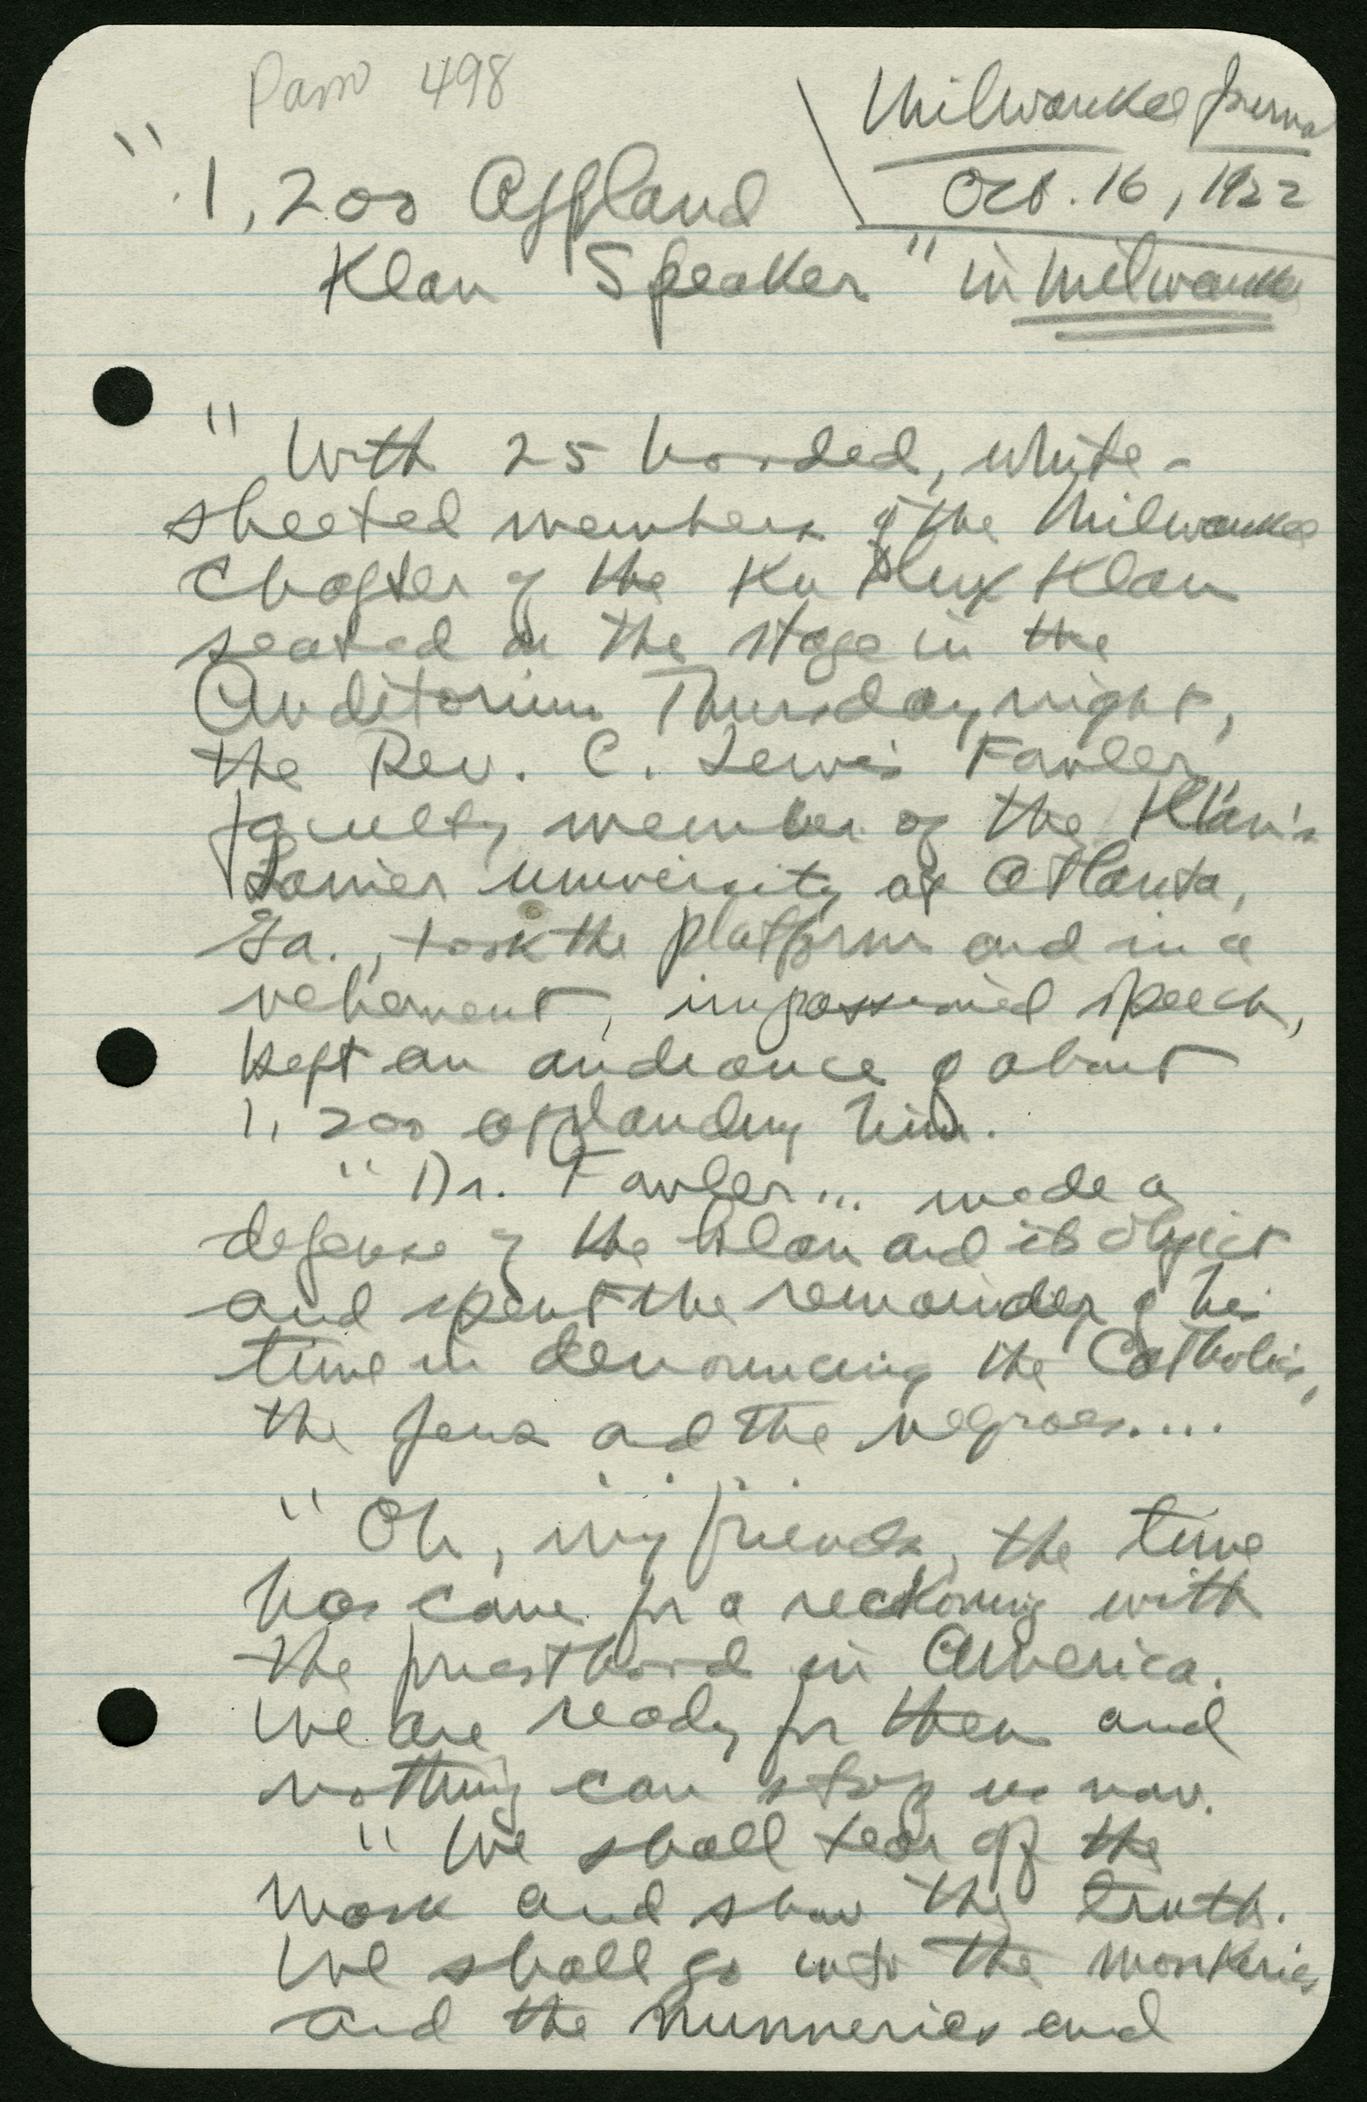 Pam 498
Milwaukee Journal
Oct. 16, 1922
" 1,200 Applaud
Klan Speaker " in Milwaukee
" With 25 hooded, white-
sheeted members of the Milwaukee
Chapter of the Ku Klux Klan
seated on the stage in the
Auditorium Thursday night,
the Rev. C. Lewis Fowler,
faculty member of the Klan's
Lanier university at Atlanta,
Ga., took the platform and in a
vehement, impassioned speech,
kept an audience of about
1,200 applauding him.
" Dr. Fowler... made a
defense of the klan and its object
and spent the remainder of his
time in denouncing the Catholics,
the Jews and the negroes....
" Oh, my friends, the time
has come for a reckoning with
the priesthood in America.
We are ready for them and
nothing can stop us now.
" We shall tear off the
mask and show the truth.
We shall go into the monkeries
and the nunneries and